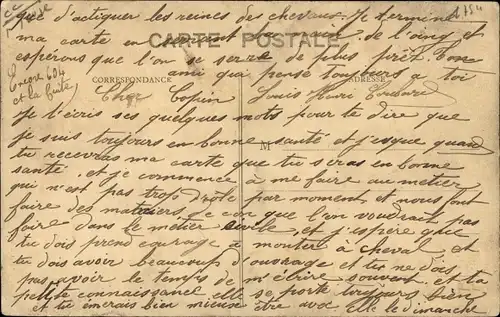 que d'astiquer les reines des chevaux. Je termine
ma carte en serrant la main de loin et
espérons que l'on se serre de plus prêt. Ton
ami qui pense toujours a toi
Louis Henri
Encore 604
et la fuite
1754
CARTE POSTALE
CORRESPONDANCE
ADRESSE
M
Cher Copin
Je t'écris ses quelques mots pour te dire que
je suis toujours en bonne santé et j'espère quand
tu recevras ma carte que tu seras en bonne
santé. et je commence à me faire au métier
qui n'est pas trop drôle par moment et nous font
faire des ce con que l'on voudrait pas
faire dans le métier civile, et j'espère que
tu dois prend courage a monter à cheval et
tu dois avoir beaucoup d'ouvrage et tu ne dois
pas avoir le temps de m'écrire souvent. et ta
petite connaissance elle se porte toujours bien
et tu aimerais bien mieux être avec elle le dimanche